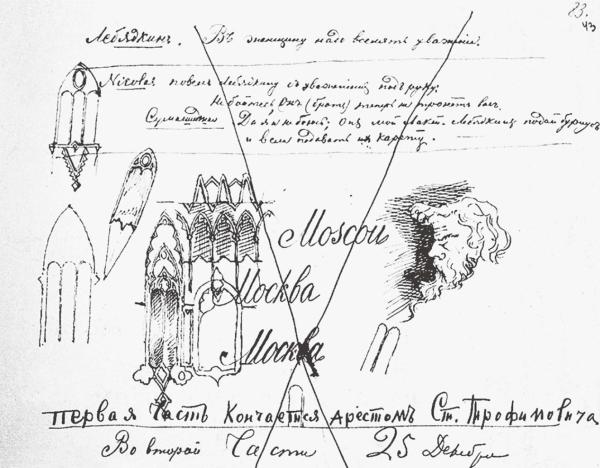 83.
43
Лебядкинъ. Въ женщину надо вселять уваженіе.
Nicolas повелъ Лебядкину съ уваженіемъ подъ руку:
Не бойтесь, онъ (братъ) теперь не тронетъ васъ.
Сумасшедшая Да я не боюсь; онъ мой лакей. Лебядкинъ подай бурнусъ
и вели подавать карету.
Moscou
Москва
Москва
Первая Часть Кончается Арестомъ Ст. Трофимовича
Во второй Части 25 Декабря